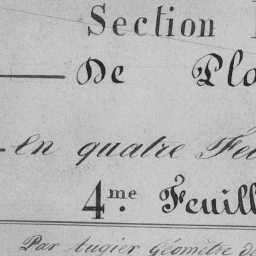 Section
De Plo
En quatre Feu
4.me Feuill
Par Augier Géomètre de